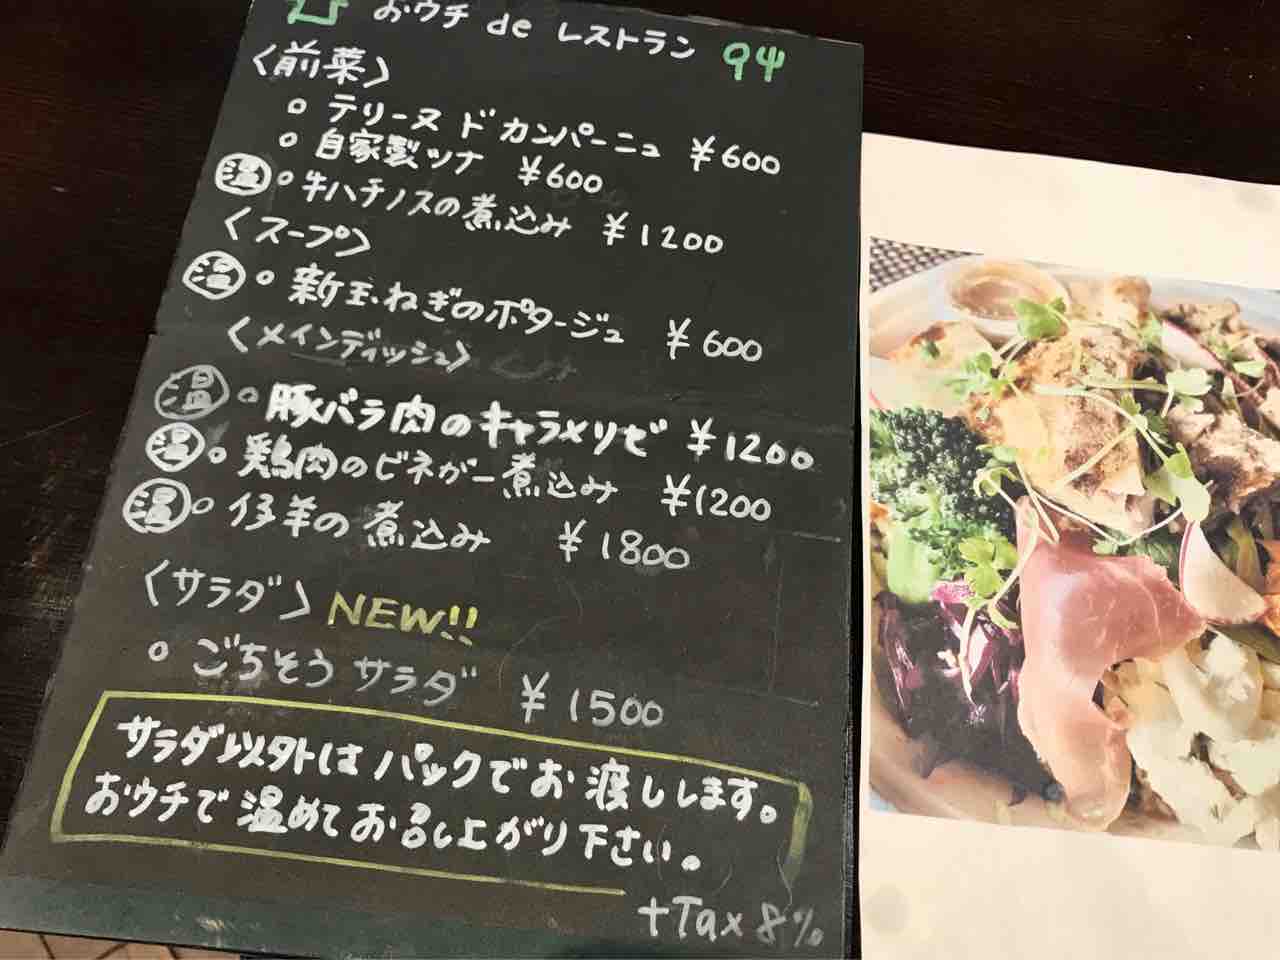 おウチ de レストラン
〈前菜〉
○ テリーヌ ド カンパーニュ ¥600
○ 自家製ツナ ¥600
温 ○ 牛ハチノスの煮込み ¥1200
〈スープ〉
温 ○ 新玉ねぎのポタージュ ¥600
〈メインディッシュ〉
温 ○ 豚バラ肉のキャラメリゼ ¥1200
温 ○ 鶏肉のビネガー煮込み ¥1200
温 ○ 仔羊の煮込み ¥1800
〈サラダ〉 NEW!!
○ ごちそうサラダ ¥1500
サラダ以外はパックでお渡しします。
おウチで温めてお召し上がり下さい。
+Tax 8%